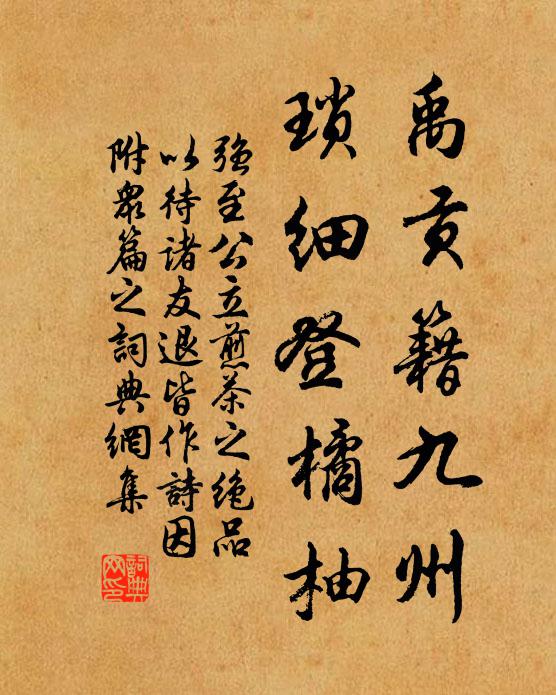 禹贡籍九州
琐细登橘柚
強至公立煎茶之絶品
以待诸友退皆作詩因
附眾篇之詞典網集
詞典网印